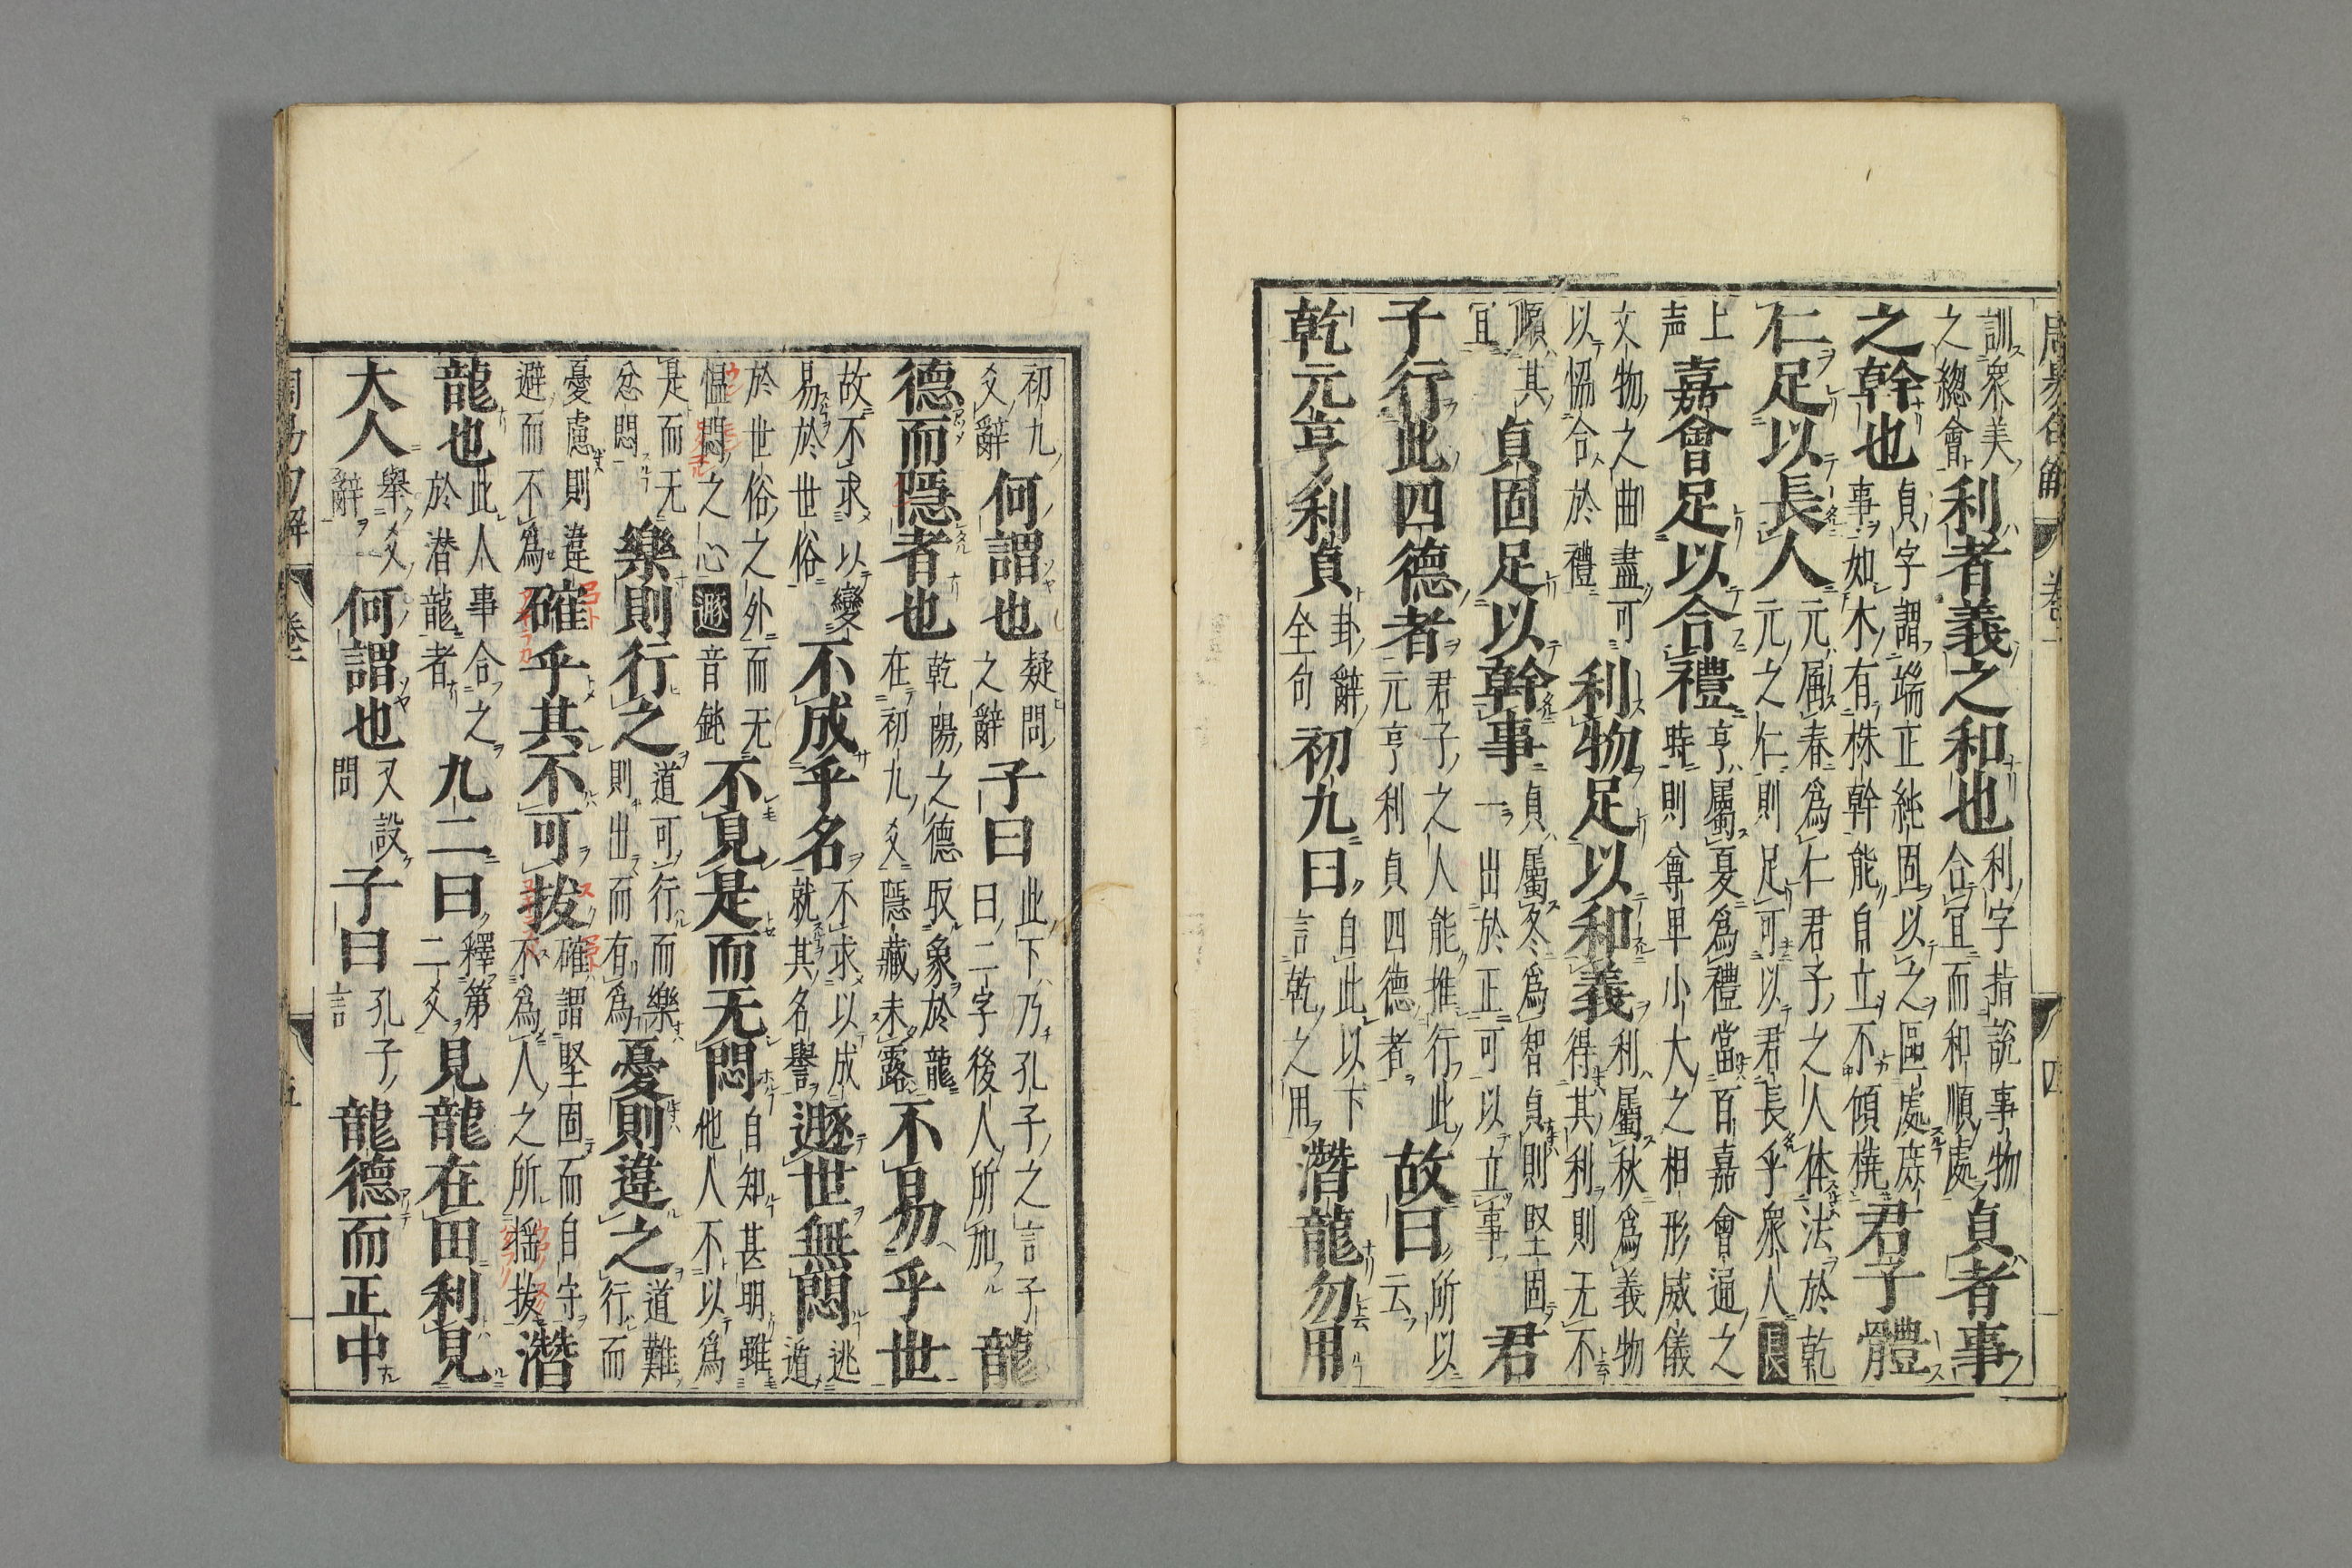 周易句解 卷一 四
訓衆美之總會利者義之和也利字指說事物合宜而和順處貞者事
之幹也貞字謂端正純固以之區處庶事如木有株幹能自立不傾撓君子體
仁足以長人元属春爲仁君子之人体法於乾元之仁則足可以君長乎衆人長
上声嘉會足以合禮亨屬夏爲禮當百嘉會通之時則尊卑小大之相形威儀
文物之曲盡可以恊合於禮利物足以和義利屬秋爲義物得其利則无不
順其宜貞固足以幹事貞屬冬爲智貞則堅固一出於正可以立事君
子行此四德者君子之人能推行此元亨利貞四德者故曰所以云
乾元亨利貞卦辭全句初九曰自此以下言乾之用潛龍勿用
初九爻辭何謂也疑問之辭子曰此下乃孔子之言子曰二字後人所加龍
德而隱者也乾陽之德取象於龍在初九爻隱藏未露不易乎世
故不求以變易於世俗不成乎名不求以成就其名譽遯世無悶逃遁
於世俗之外而无慍悶之心遯音鈍不見是而无悶自知甚明雖他人不以爲
是而无忿悶樂則行之道可行而樂則出而有爲憂則違之道難行而
憂慮則違避而不爲確乎其不可拔確謂堅固而自守不爲人之所搖拔潛
龍也此人事合之於潜龍者九二曰釋第二爻見龍在田利見
大人舉爻辭何謂也又設問子曰孔子言龍德而正中
周易句解 卷一 五